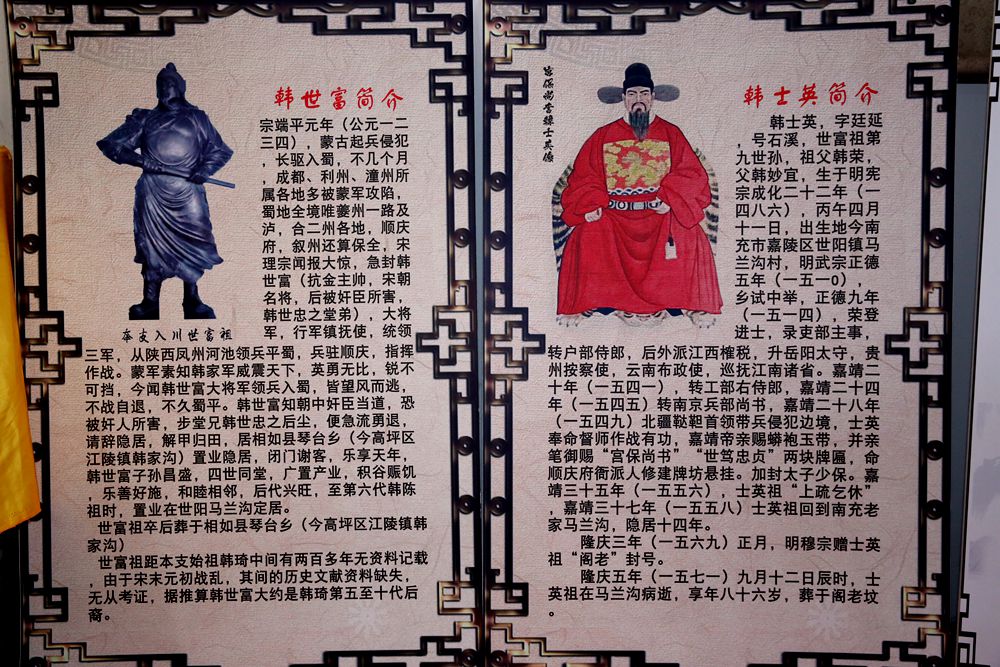 韩世富简介
宗端平元年（公元一二
三四），蒙古起兵侵犯
，长驱入蜀，不几个月
，成都、利州、潼州所
属各地多被蒙军攻陷，
蜀地全境唯夔州一路及
泸，合二州各地，顺庆
府，叙州还算保全，宋
理宗闻报大惊，急封韩
世富（抗金主帅，宋朝
名将，后被奸臣所害，
韩世忠之堂弟），大将
军，行军镇抚使，统领
奉支入川世富祖
三军，从陕西凤州河池领兵平蜀，兵驻顺庆，指挥
作战。蒙军素知韩家军威震天下，英勇无比，锐不
可挡，今闻韩世富大将军领兵入蜀，皆望风而逃，
不战自退，不久蜀平。韩世富知朝中奸臣当道，恐
被奸人所害，步堂兄韩世忠之后尘，便急流勇退，
请辞隐居，解甲归田，居相如县琴台乡（今高坪区
江陵镇韩家沟）置业隐居，闭门谢客，乐享天年，
韩世富子孙昌盛，四世同堂，广置产业，积谷赈饥
，乐善好施，和睦相邻，后代兴旺，至第六代韩陈
祖时，置业在世阳马兰沟定居。
世富祖卒后葬于相如县琴台乡（今高坪区江陵镇韩
家沟）
世富祖距本支始祖韩琦中间有两百多年无资料记载
，由于宋末元初战乱，其间的历史文献资料缺失，
无从考证，据推算韩世富大约是韩琦第五至十代后
裔。
宫保尚书韩士英像
韩士英简介
韩士英，字廷延
，号石溪，世富祖第
九世孙，祖父韩荣，
父韩妙宜，生于明宪
宗成化二十二年（一
四八六），丙午四月
十一日，出生地今南
充市嘉陵区世阳镇马
兰沟村，明武宗正德
五年（一五一0），
乡试中举，正德九年
（一五一四），荣登
进士，录吏部主事，
转户部侍郎，后外派江西榷税，升岳阳太守，贵
州按察使，云南布政使，巡抚江南诸省。嘉靖二
十年（一五四一），转工部右侍郎，嘉靖二十四
年（一五四五）转南京兵部尚书，嘉靖二十八年
（一五四九）北疆鞑靼首领带兵侵犯边境，士英
奉命督师作战有功，嘉靖帝亲赐蟒袍玉带，并亲
笔御赐“宫保尚书”“世笃忠贞”两块牌匾，命
顺庆府衙派人修建牌坊悬挂。加封太子少保。嘉
靖三十五年（一五五六），士英祖“上疏乞休”
，嘉靖三十七年（一五五八）士英祖回到南充老
家马兰沟，隐居十四年。
隆庆三年（一五六九）正月，明穆宗赠士英
祖“阁老”封号。
隆庆五年（一五七一）九月十二日辰时，士
英祖在马兰沟病逝，享年八十六岁，葬于阁老坟
。